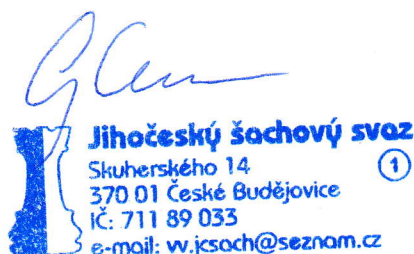 Jihočeský šachový svaz
Skuherského 14
1
370 01 České Budějovice
IČ: 711 89 033
e-mail: vv.jcsach@seznam.cz